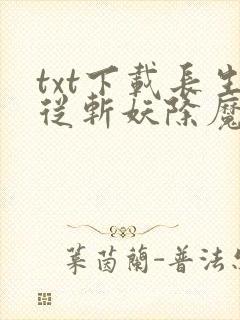 txt下載長生
從斬妖除魔
葉茵蘭-普法